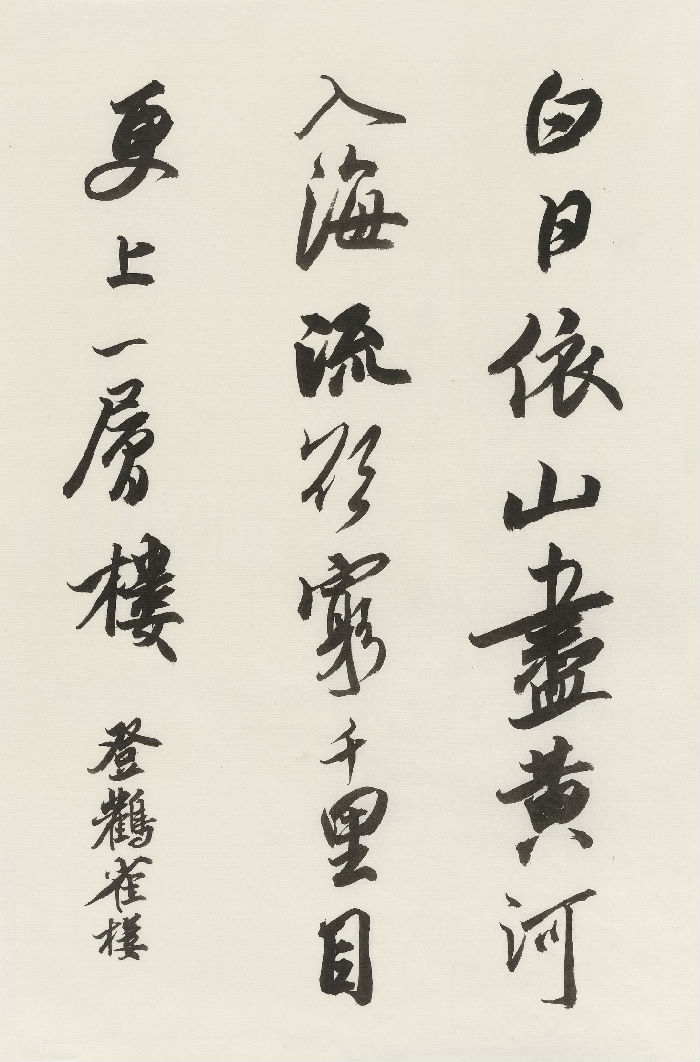 白日依山盡黄河
入海流欲窮千里目
更上一層樓
登鸛雀樓